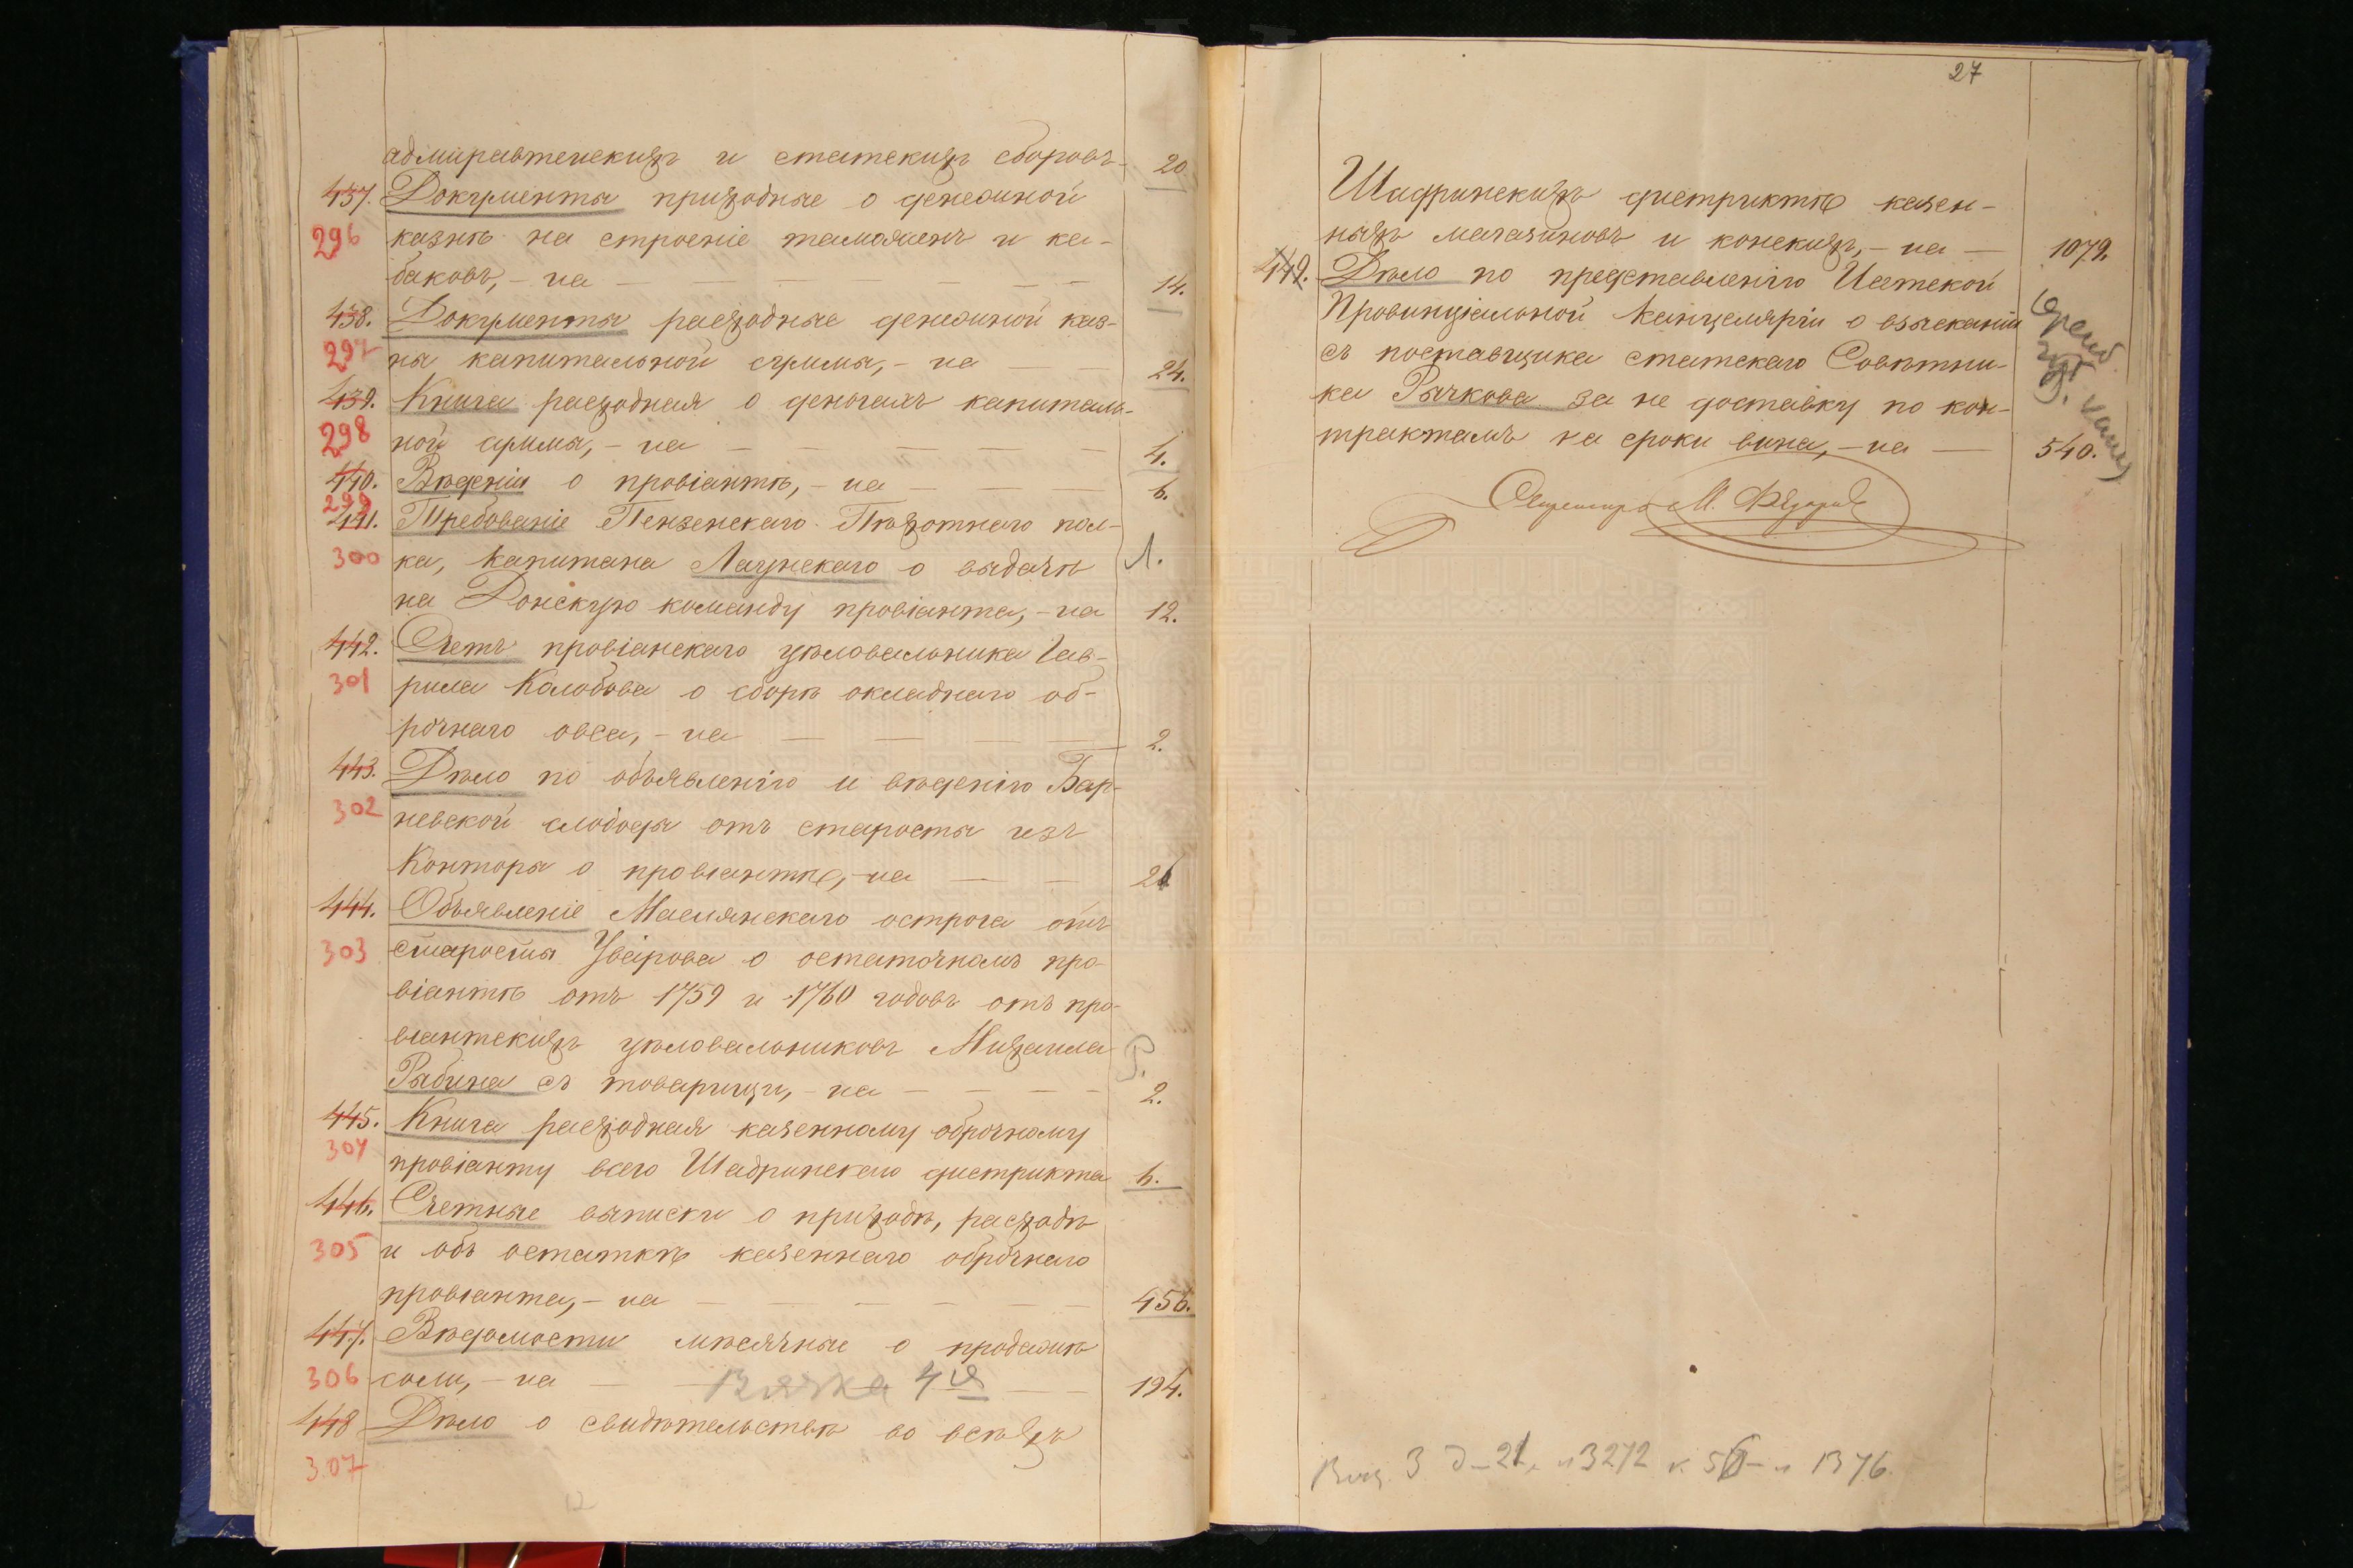 адмиралтейскихъ и статскихъ сборовъ 20
437. Документы приходные о денежной
296 казнѣ на строеніе таможенъ и ка-
баковъ, - на 14.
438. Документы расходные денежной каз-
297 ны капитальной суммы, - на 24.
439. Книга расходная о деньгахъ капиталь-
298 ной суммы, - на 4.
440. Вѣденіи о провіантѣ, - на 6.
299
441. Требованіе Пензенскаго Пѣхотнаго пол-
300 ка, капитана Лагунскаго о выдачѣ Л.
на Донскую команду провіанта, - на 12.
442. Счетъ провіанскаго цѣловальника Гав-
301 рила Колобова о сборѣ окладнаго об-
рочнаго овса, - на 2.
443. Дѣло по объявленію и вѣденію Бар-
302 невской слободы отъ старосты изъ
Конторы о провіантѣ, - на 26
444. Объявленіе Маслянскаго острога отъ
303 старосты Уварова о остаточномъ про-
віантѣ отъ 1759 и 1760 годовъ отъ про-
віантскихъ цѣловальниковъ Михаила
Рыбина съ товарищи, - на 2.
445. Книга расходная казенному оброчному
304 провіанту всего Шадринскаго дистрикта 6.
446. Счетные выписки о приходѣ, расходѣ
305 и объ остаткѣ казеннаго оброчнаго
провіанта, - на 456.
447. Вѣдомости мѣсячные о продажѣ
306 соли, - на Вязка 4я 194.
448 Дѣло о свидѣтельствѣ во всѣхъ
307
27
Шадринскихъ дистриктѣ казен-
ныхъ магазиновъ и конскихъ, - на 1079.
449. Дѣло по представленію Исетской
Провинціальной Канцеляріи о взысканіи
съ поставщика статскаго Совѣтни-
ка Рычкова за не доставку по кон-
трактамъ на сроки вина, - на 540.
Секретарь М. Ѳедоровъ